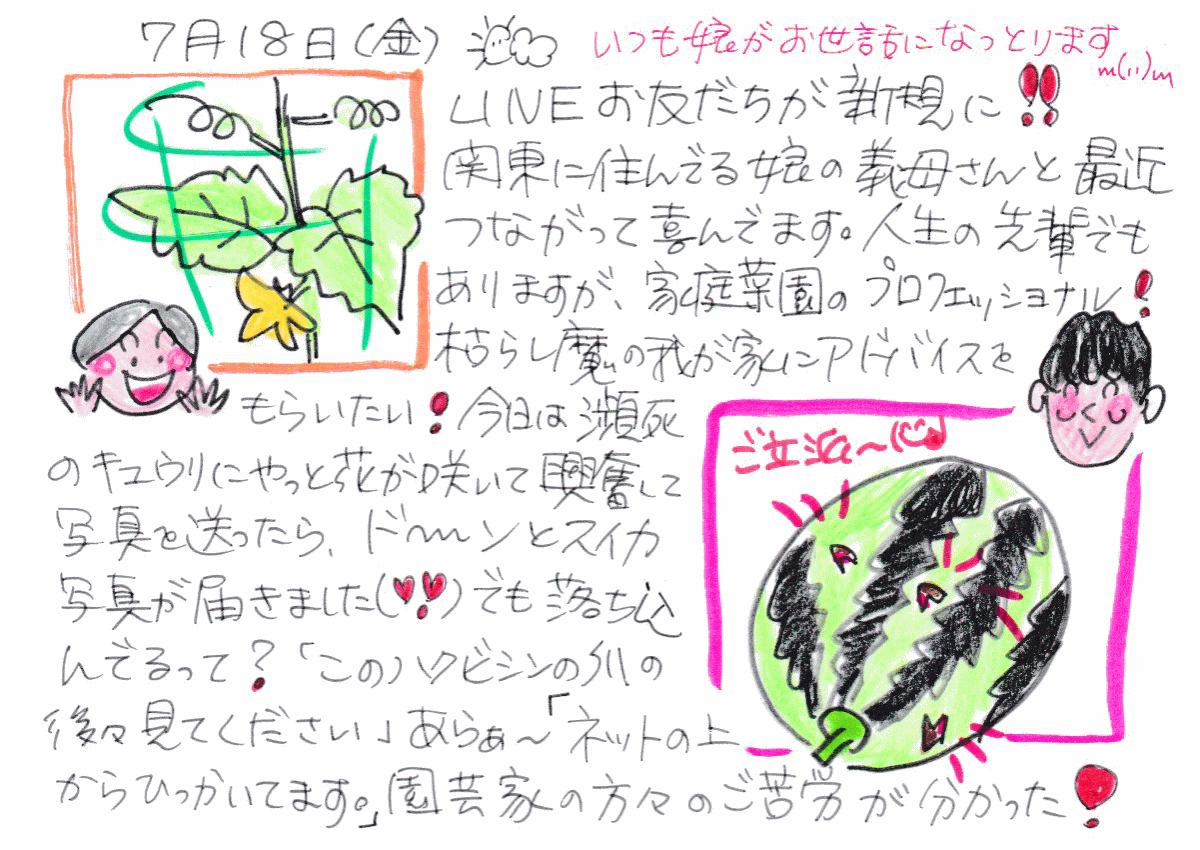 7月18日(金)
いつも娘がお世話になっとります
m(_ _)m
LINEお友だちが新規に!!
関東に住んでる娘の義母さんと最近
つながって喜んでます。人生の先輩でも
ありますが、家庭菜園のプロフェッショナル!
枯らし魔の我が家にアドバイスを
もらいたい!今日は瀕死
のキュウリにやっと花が咲いて興奮して
写真を送ったら、ド〜ンとスイカ
写真が届きました(♥!♥!)でも落ち込
んでるって?「このハクビシンの爪の
後々見てください」あらぁ〜「ネットの上
からひっかいてます。」園芸家の方々のご苦労が分かった!
ご立派〜